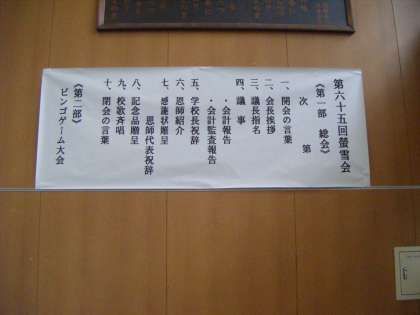 第六十五回螢雪会
《第一部　総会》
次　第
一、開会の言葉
二、会長挨拶
三、議長指名
四、議　事
・会計報告
・会計監査報告
五、学校長祝辞
六、恩師紹介
七、感謝状贈呈
恩師代表祝辞
八、記念品贈呈
九、校歌斉唱
十、閉会の言葉
《第二部》
ビンゴゲーム大会